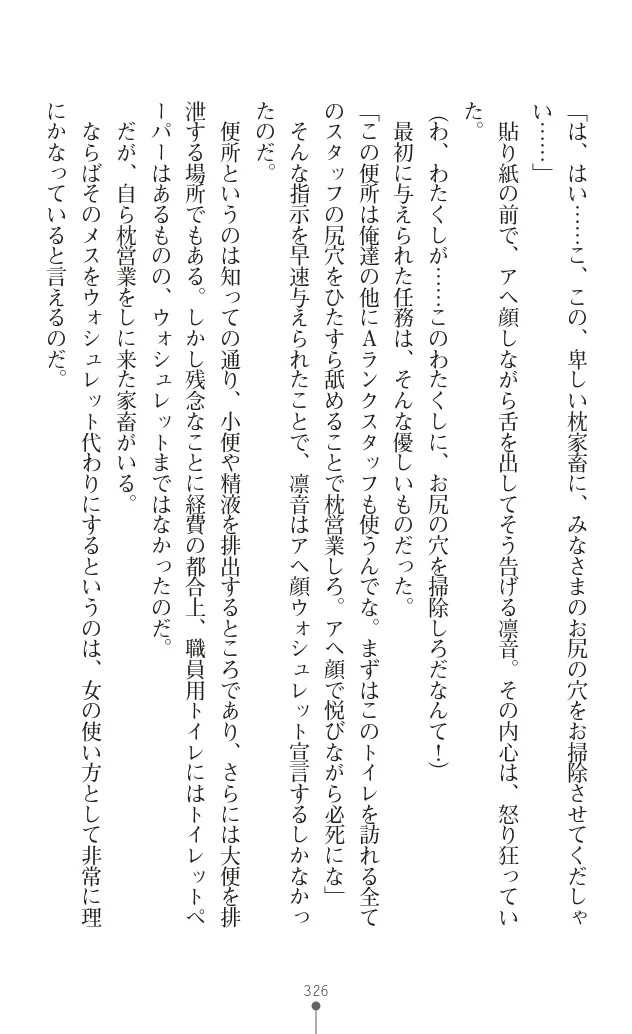 「は、はい……こ、この、卑しい枕家畜に、みなさまのお尻の穴をお掃除させてくだしゃ
い……」
　貼り紙の前で、アヘ顔しながら舌を出してそう告げる凛音。その内心は、怒り狂ってい
た。
（わ、わたくしが……このわたくしに、お尻の穴を掃除しろだなんて！）
　最初に与えられた任務は、そんな優しいものだった。
「この便所は俺達の他にＡランクスタッフも使うんでな。まずはこのトイレを訪れる全て
のスタッフの尻穴をひたすら舐めることで枕営業しろ。アヘ顔で悦びながら必死にな」
　そんな指示を早速与えられたことで、凛音はアヘ顔ウォシュレット宣言するしかなかっ
たのだ。
　便所というのは知っての通り、小便や精液を排出するところであり、さらには大便を排
泄する場所でもある。しかし残念なことに経費の都合上、職員用トイレにはトイレットペ
ーパーはあるものの、ウォシュレットまではなかったのだ。
　だが、自ら枕営業をしに来た家畜がいる。
　ならばそのメスをウォシュレット代わりにするというのは、女の使い方として非常に理
にかなっていると言えるのだ。
326